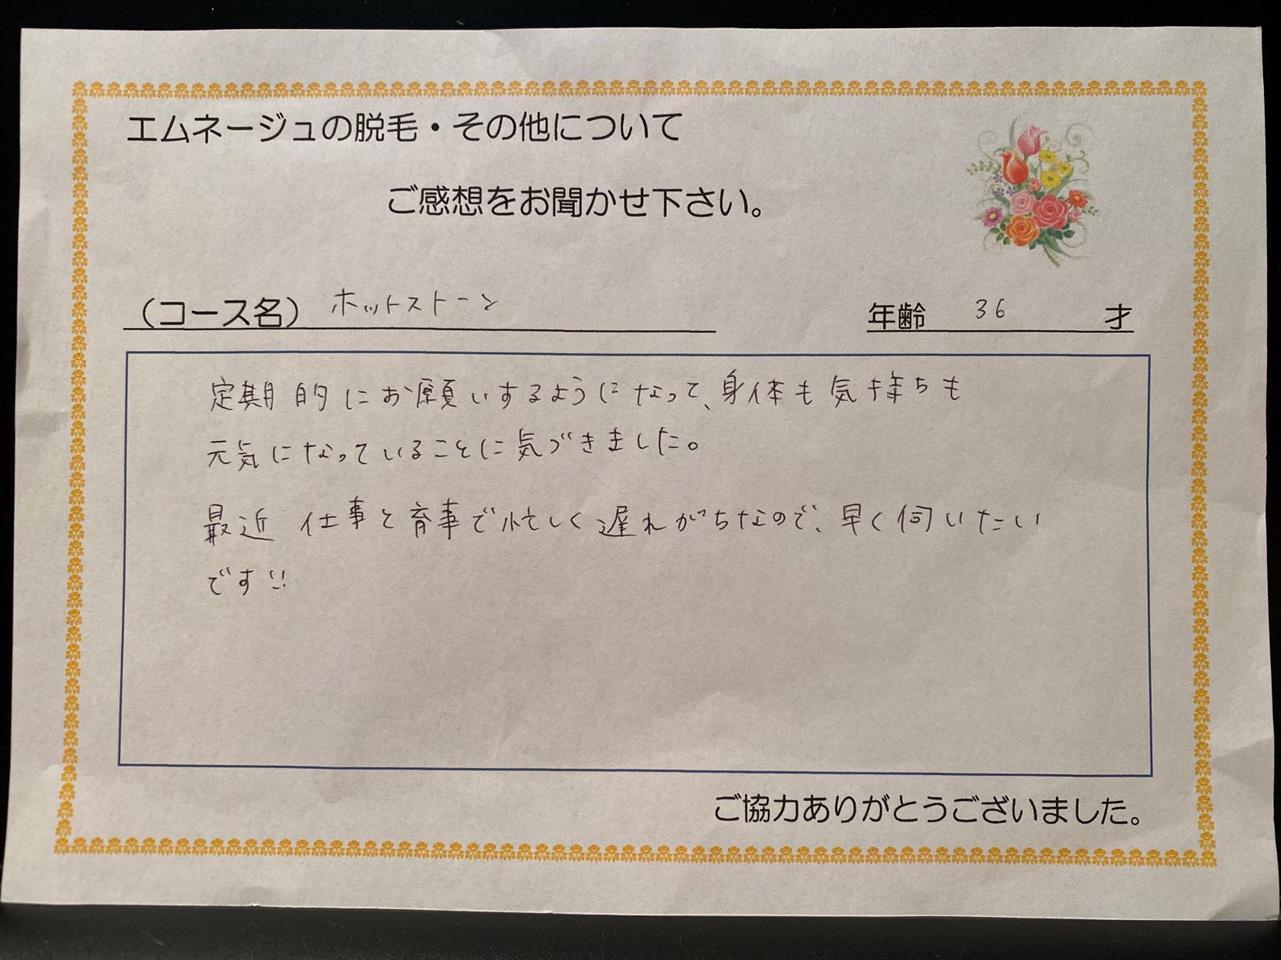 エムネージュの脱毛・その他について
ご感想をお聞かせ下さい。
（コース名） ホットストーン
年齢 36 才
定期的にお願いするようになって、身体も気持ちも
元気になっていることに気づきました。
最近 仕事と育事で忙しく遅れがちなので、早く伺いたい
です!!
ご協力ありがとうございました。